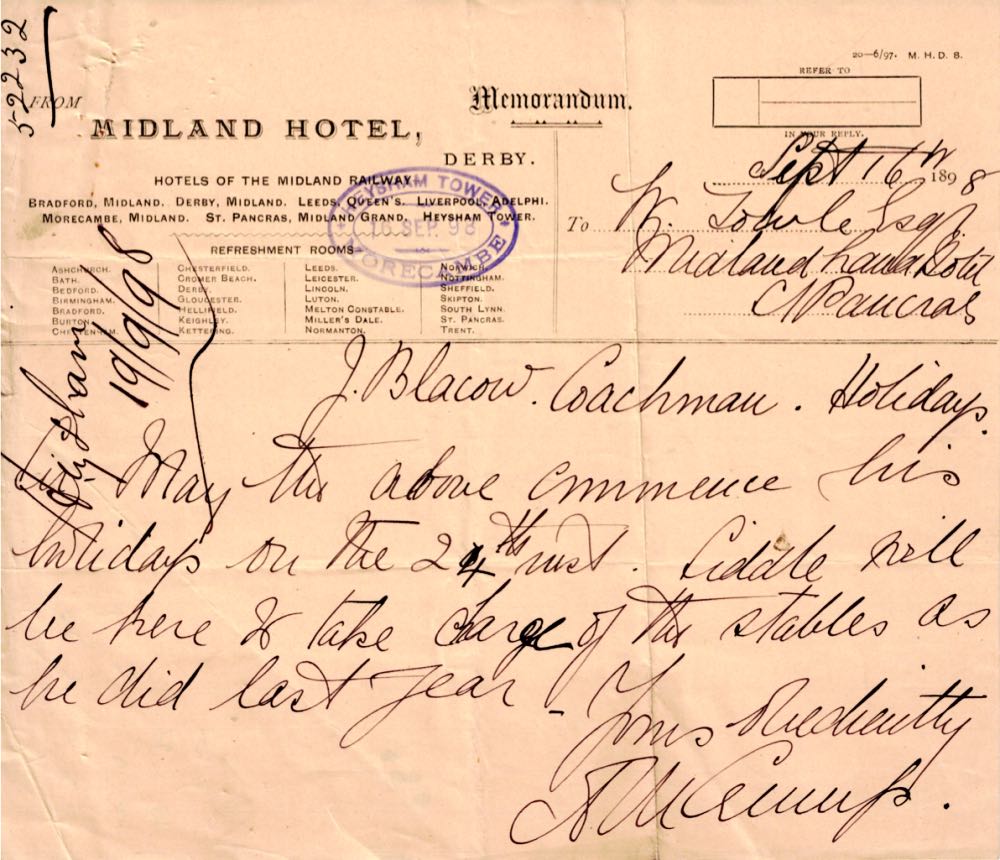 52232
20—6/97. M. H. D. B.
FROM
Memorandum.
REFER TO
IN YOUR REPLY.
MIDLAND HOTEL,
DERBY.
HOTELS OF THE MIDLAND RAILWAY
BRADFORD, MIDLAND. DERBY, MIDLAND. LEEDS, QUEEN'S. LIVERPOOL, ADELPHI.
MORECAMBE, MIDLAND. ST. PANCRAS, MIDLAND GRAND. HEYSHAM TOWER.
HEYSHAM TOWER
16 SEP. 98
MORECAMBE
Sept 16th 1898
To W. Towle Esqr
Midland Grand Hotel
St Pancras
REFRESHMENT ROOMS
ASHCHURCH. CHESTERFIELD. LEEDS. NORWICH.
BATH. CROMER BEACH. LEICESTER. NOTTINGHAM.
BEDFORD. DERBY. LINCOLN. SHEFFIELD.
BIRMINGHAM. GLOUCESTER. LUTON. SKIPTON.
BRADFORD. HELLIFIELD. MELTON CONSTABLE. SOUTH LYNN.
BURTON. KEIGHLEY. MILLER'S DALE. ST. PANCRAS.
CHELTENHAM. KETTERING. NORMANTON. TRENT.
Heysham
19/9/98
J. Blacow. Coachman. Holidays.
Sir May the above commence his
holidays on the 24th inst. Liddle will
be here & take charge of the stables as
he did last year -
Yours Obediently